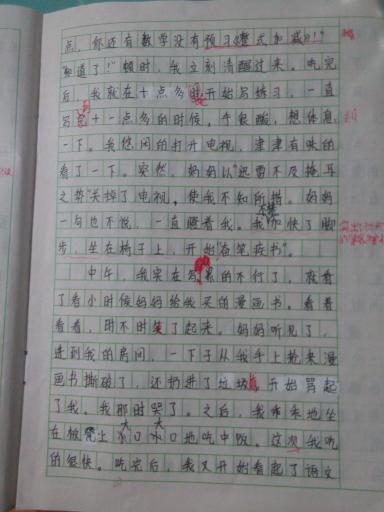 点，你还有数学没有预习《整式加减》！"
"知道了！"顿时，我立刻清醒过来。吃完
后，我就在十点多时开始写练习，一直
写到十一点多的时候，手很酸，想休息
一下。我悠闲的打开电视，津津有味的
看了一下。突然，妈妈以"迅雷不及掩耳
之势"关掉了电视，使我不知所措。妈妈
一句也不说，一直瞪着我。我加快了脚
步，坐在椅子上，开始"奋笔疾书"。
中午，我实在写累的不行了，就看
了看小时候妈妈给我买的漫画书。看着
看着，时不时笑了起来。妈妈听见了，
进到我的房间，一下子从我手上抢来漫
画书撕破了，还扔进了垃圾，开始骂起
了我。我那时哭了。之后，我乖乖地坐
在板凳上大口大口地吃中饭。这次我吃
的很快。吃完后，我又开始看起了语文